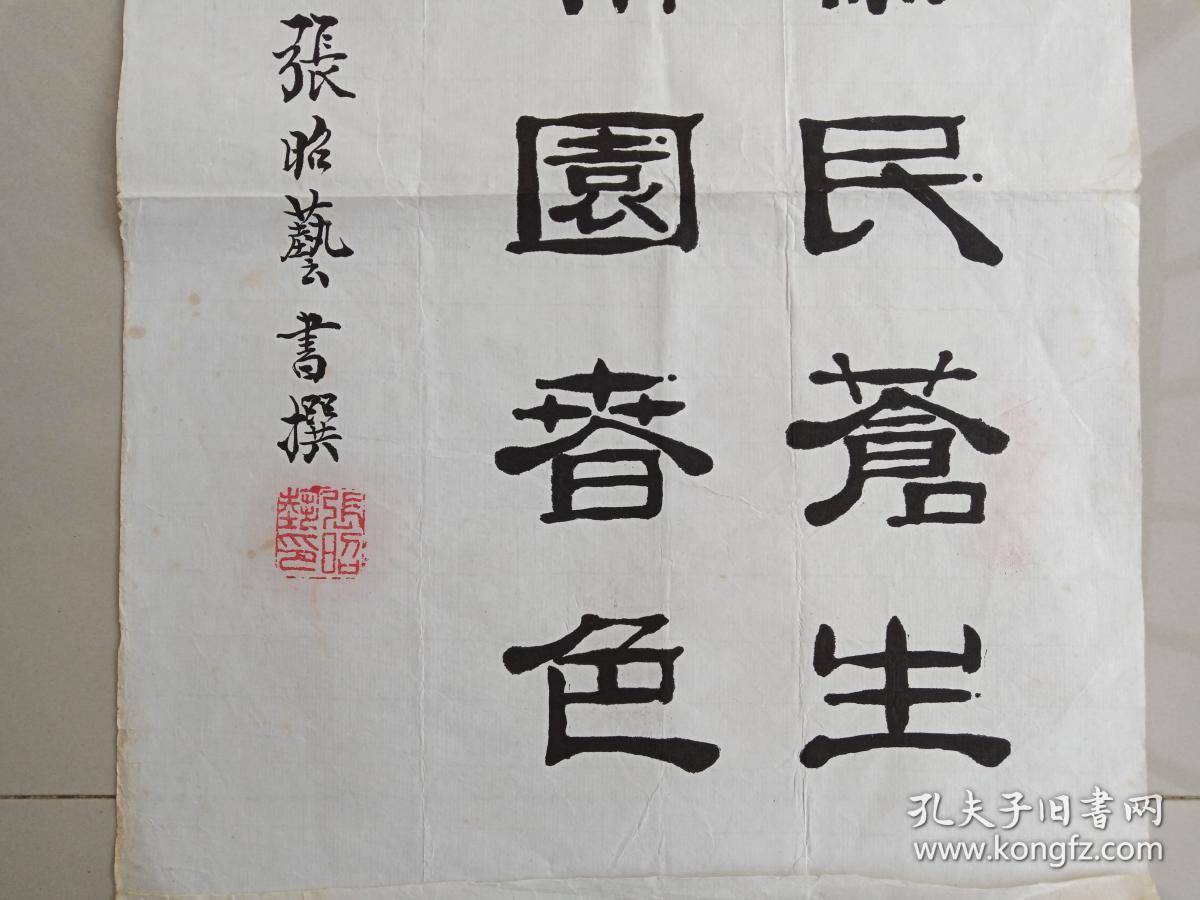 民蒼生
園春色
張昭藝書撰
張昭藝印
孔夫子旧书网
www.kongfz.com